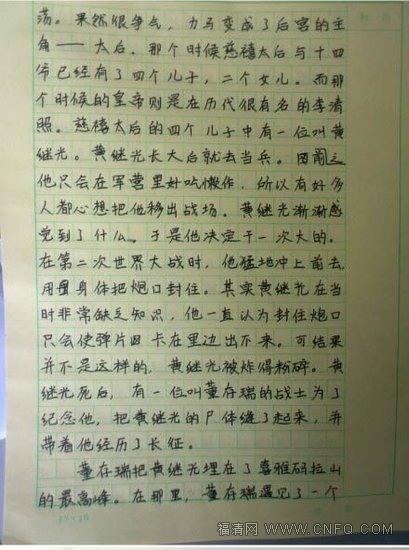 荡。果然很争气，力马变成了后宫的主
角——太后。那个时候慈禧太后与十四
帝已经有了四个儿子，二个女儿。而那
个时候的皇帝则是在历代很有名的李清
照。慈禧太后的四个儿子中有一位叫黄
继光。黄继光长大后就去当兵。因
他只会在军营里好吃懒作，所以有好多
人都心想把他移出战场。黄继光渐渐感
觉到了什么。于是他决定干一次大的。
在第二次世界大战时，他猛地冲上前去，
用身体把炮口封住。其实黄继光在当
时非常缺乏知识，他一直认为封住炮口
只会使弹片卡在里边出不来。可结果
并不是这样的，黄继光被炸得粉碎。黄
继光死后，有一位叫董存瑞的战士为了
纪念他，把黄继光的尸体缝了起来，并
带着他经历了长征。
董存瑞把黄继光埋在了喜雅码拉山
的最高峰。在那里，董存瑞遇见了一个
福清网 WWW.CNFQ.COM